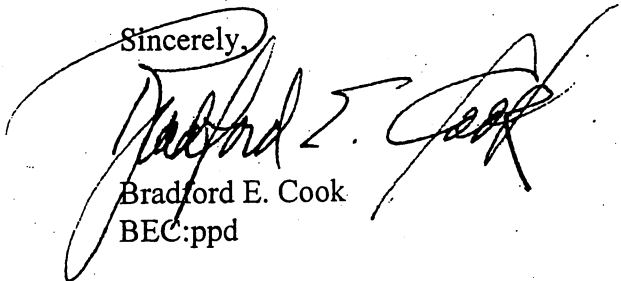 Sincerely,
Bradford E. Cook
Bradford E. Cook
BEC:ppd